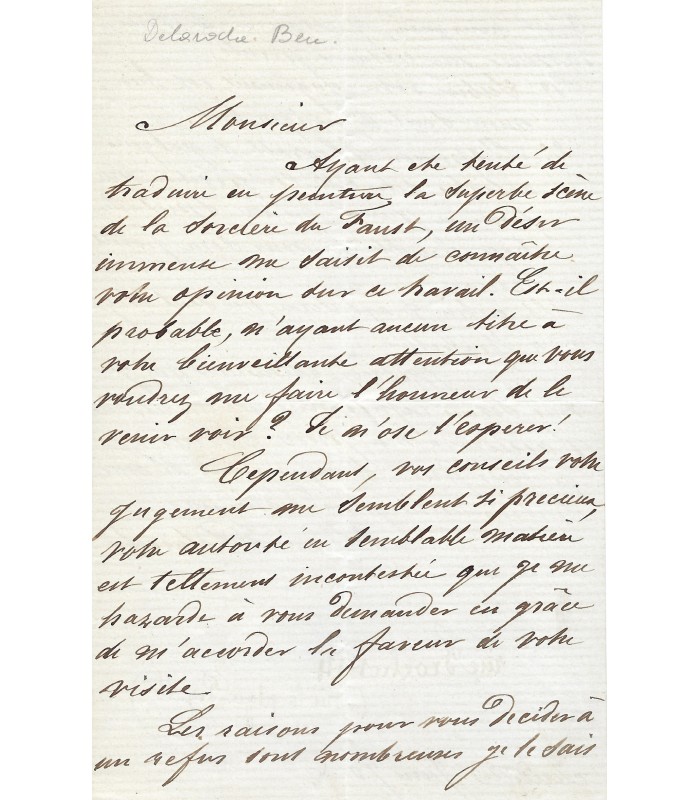 Delaroche. Ben.
Monsieur
Ayant ete tenté de
traduire en peinture la superbe scène
de la sorcière du Faust, un Désir
immense me saisit de connaître
votre opinion sur ce travail. Est-il
probable, n'ayant aucun titre à
votre bienveillante attention que vous
voudrez me faire l'honneur de le
venir voir? Je n'ose l'esperer!
Cependant, vos conseils votre
jugement me semblent si precieux,
votre autorité en semblable matière
est tellement incontestée que je me
hazarde à vous demander en grâce
de m'accorder la faveur de votre
visite
Les raisons pour vous decider à
un refus sont nombreuses je le sais